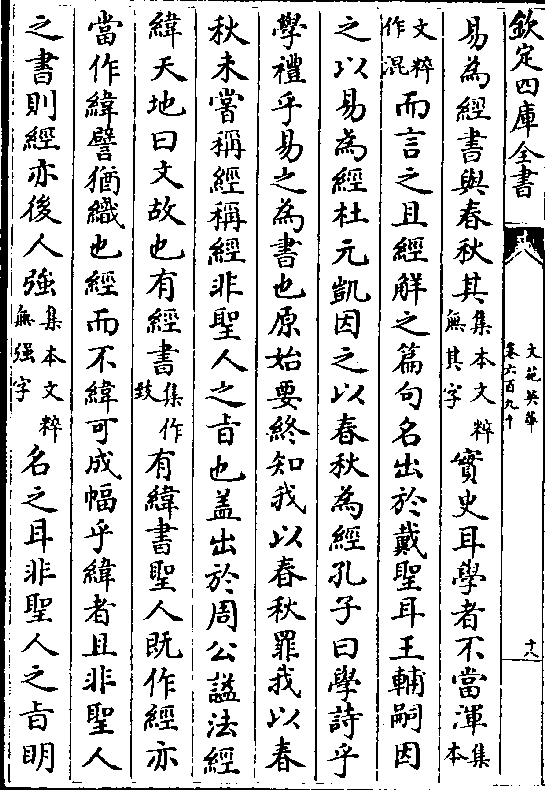 欽定四庫全書
文苑英華
卷六百九十
十八
易為經書與春秋其集本文粹無其字實史耳學者不當渾集本
文粹作混而言之且經解之篇句名出於戴聖耳王輔嗣因
之以易為經杜元凱因之以春秋為經孔子曰學詩乎
學禮乎易之為書也原始要終知我以春秋罪我以春
秋未嘗稱經稱經非聖人之旨也盖出於周公謚法經
緯天地曰文故也有經書集作玫有緯書聖人既作經亦
當作緯譬猶織也經而不緯可成幅乎緯者且非聖人
之書則經亦後人強集本文粹無强字名之耳非聖人之旨明